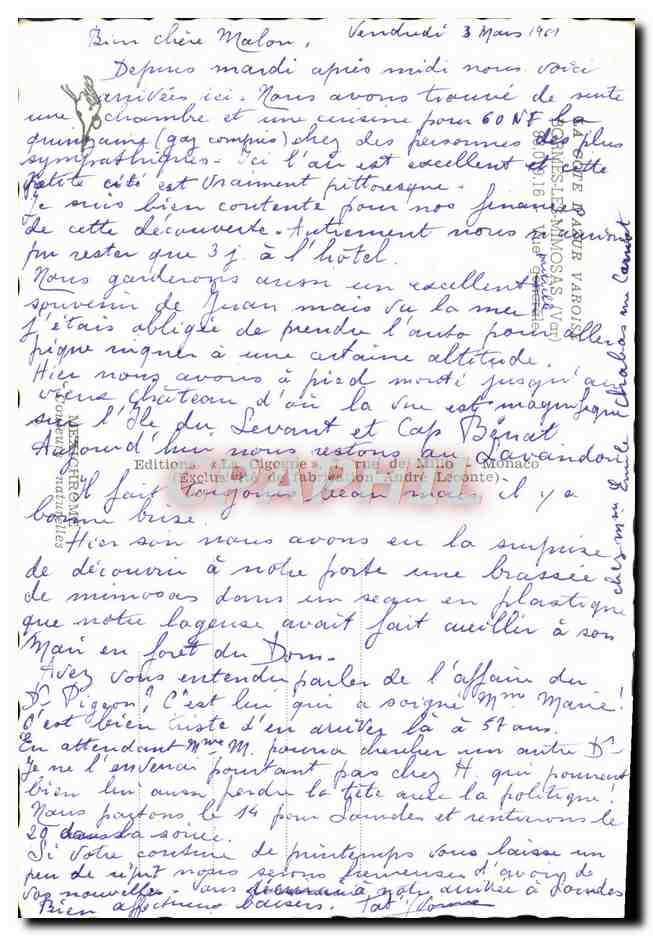 Vendredi 3 Mars 1961
Bien chère Malou,
Depuis mardi après midi nous voici
arrivées ici. Nous avons trouvé de suite
une chambre et une cuisine pour 60 NF la
quinzaine (gaz compris) chez des personnes des plus
sympathiques. Ici l'air est excellent et cette
petite cité est vraiment pittoresque.
Je suis bien contente pour nos finances
de cette découverte. Autrement nous n'aurions
pu rester que 3 j. à l'hôtel.
Nous garderons aussi un excellent
souvenir de Juan mais vu la mer
j'étais obligée de prendre l'auto pour aller
pique niquer à une certaine altitude.
Hier nous avons à pied monté jusqu'au
vieux château d'où la vue est magnifique
sur l'Île du Levant et Cap Bénat
Aujourd'hui nous restons au Lavandou
Il fait toujours beau mais il y a
bonne brise.
Hier soir nous avons eu la surprise
de découvrir à notre porte une brassée
de mimosas dans un seau en plastique
que notre logeuse avait fait cueillir à son
Mari en forêt du Dom.
Avez vous entendu parler de l'affaire du
Dr Pigeon? C'est lui qui a soigné Mme Marie!
C'est bien triste d'en arriver là à 57 ans.
En attendant Mme M. pourra chercher un autre Dr
Je ne l'enverrai pourtant pas chez H. qui pourrait
bien lui aussi perdre la tête avec la politique!
Nous partons le 14 pour Lourdes et rentrerons le
20 dans la soirée.
Si votre couture de printemps vous laisse un
peu de répit nous serons heureuses d'avoir de
vos nouvelles. à notre arrivée à Lourdes
Bien affectueux baisers.
chez Mme Emile Chabas rue Carnot
LA COTE D'AZUR VAROISE
BORMES-LES-MIMOSAS (Var)
Vue générale
MEXICHROME
Couleurs naturelles
Editions « La Cigogne », rue de Millo - Monaco
(Exclusivité de fabrication André Leconte)
CPAPHIL